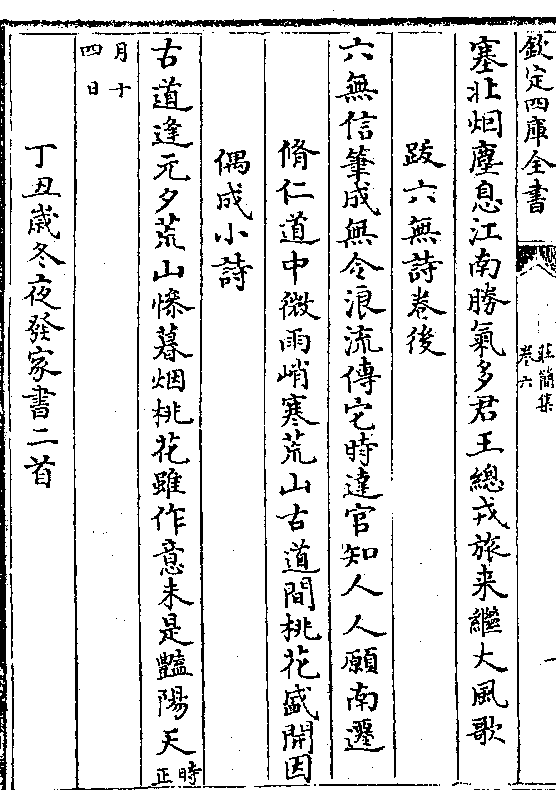 欽定四庫全書
莊簡集
卷六
塞北烟塵息江南勝氣多君王總戎旅来繼大風歌
跋六無詩卷後
六無信筆成無令浪流傳它時達官知人人願南遷
脩仁道中微雨峭寒荒山古道間桃花盛開因
偶成小詩
古道逢元夕荒山慘暮烟桃花雖作意未是豔陽天時正
月十四日
丁丑歲冬夜發家書二首